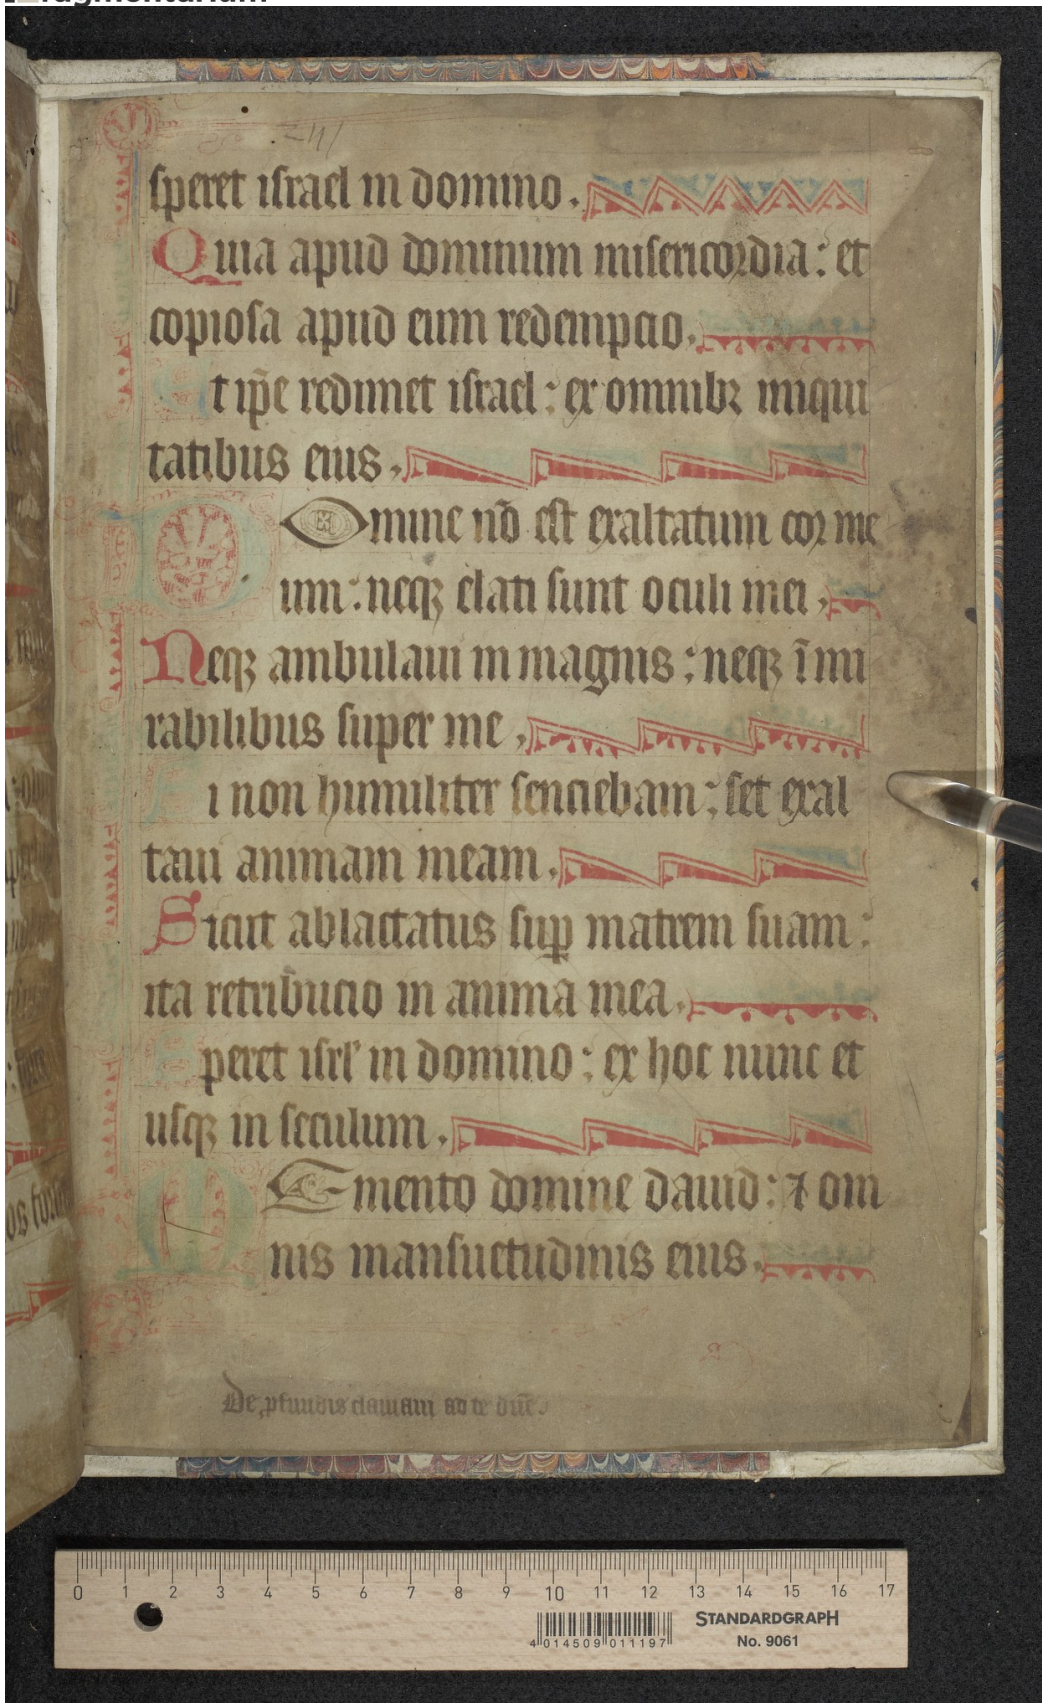 speret israel in domino.
Quia apud dominum misericordia: et
copiosa apud eum redempcio.
Et ip̄e redimet israel: ex omnibꝫ iniqui
tatibus eius.
DOmine nō est exaltatum cor me
um: neqꝫ elati sunt oculi mei.
Neqꝫ ambulaui in magnis: neqꝫ ī mi
rabilibus super me.
Si non humiliter senciebam: set exal
taui animam meam.
Sicut ablactatus suꝑ matrem suam:
ita retribucio in anima mea.
Speret isrl' in domino: ex hoc nunc et
usqꝫ in seculum.
MEmento domine dauid: ⁊ om
nis mansuetudinis eius.
De ꝓfundis clamaui ad te dn̄e.
0 1 2 3 4 5 6 7 8 9 10 11 12 13 14 15 16 17
STANDARDGRAPH
No. 9061
4 014509 011197